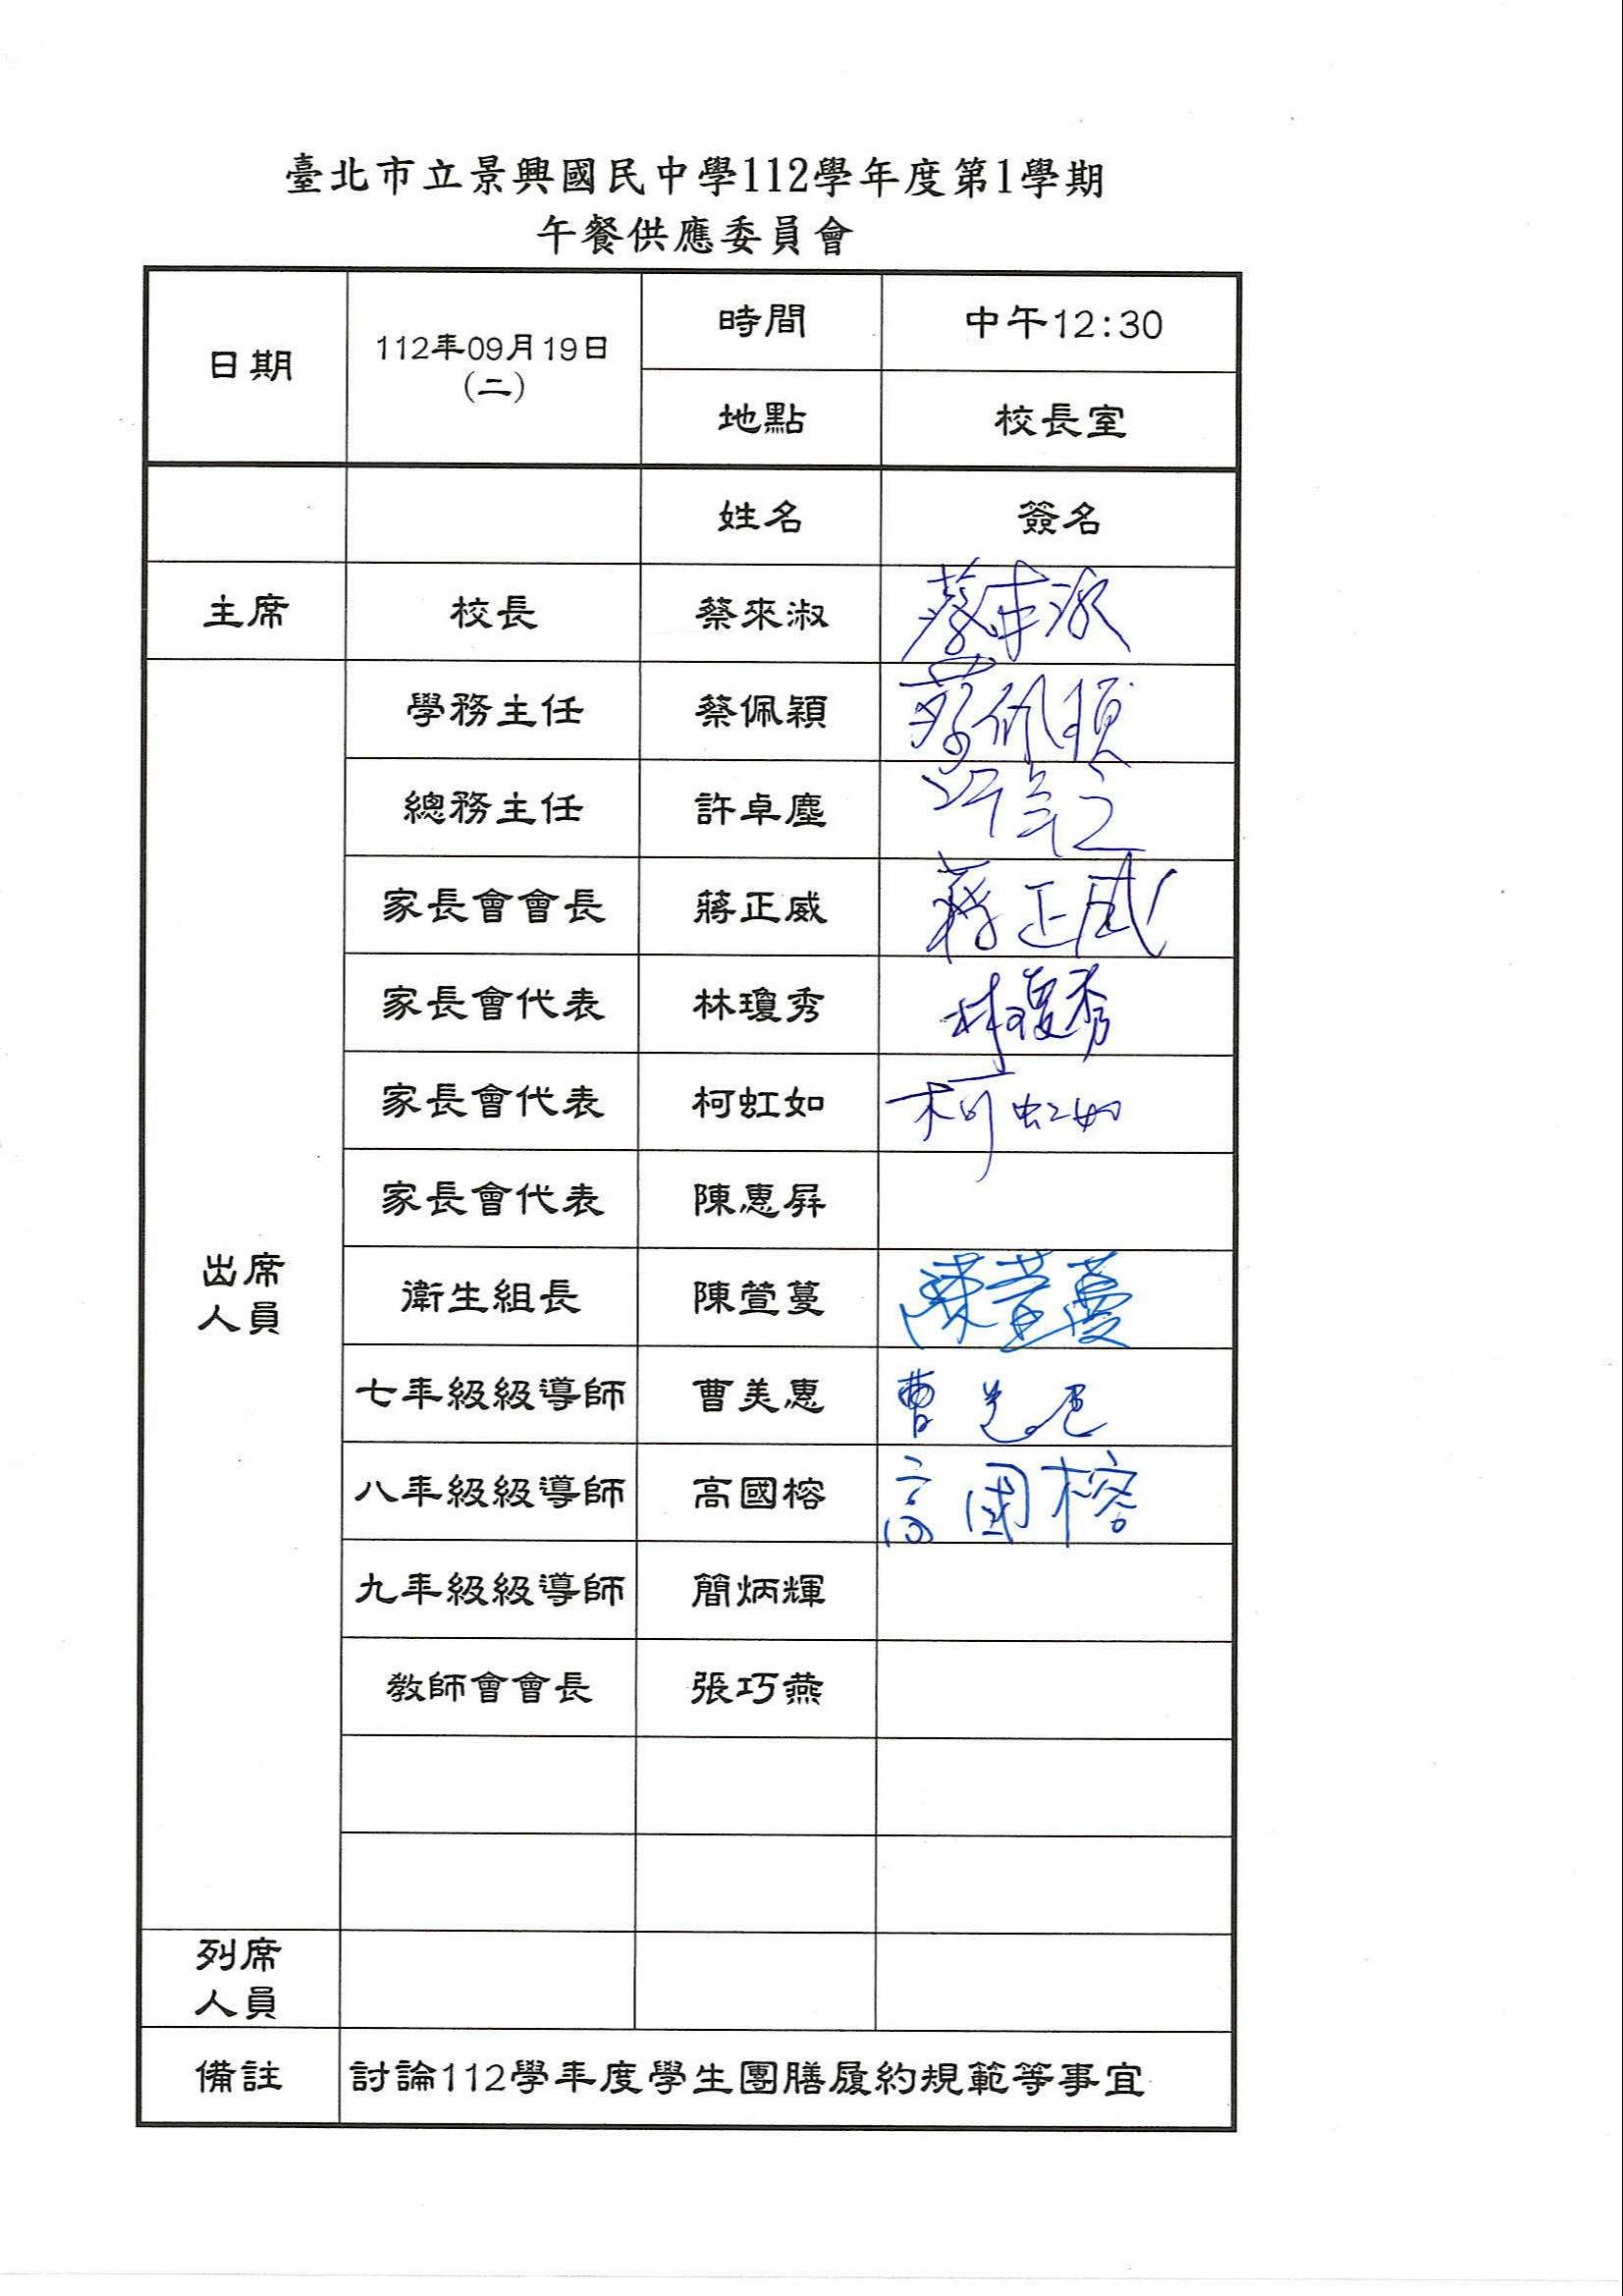 臺北市立景興國民中學112學年度第1學期
午餐供應委員會
日期
112年09月19日
(二)
時間
中午12:30
地點
校長室
姓名 簽名
主席 校長 蔡來淑
出席
人員
學務主任 蔡佩穎 蔡佩穎
總務主任 許卓塵
家長會會長 蔣正威 蔣正威
家長會代表 林瓊秀 林瓊秀
家長會代表 柯虹如 柯虹如
家長會代表 陳惠屏
衛生組長 陳萱蔓 陳萱蔓
七年級級導師 曹美惠 曹美惠
八年級級導師 高國榕 高國榕
九年級級導師 簡炳輝
教師會會長 張巧燕
列席
人員
備註 討論112學年度學生團膳履約規範等事宜